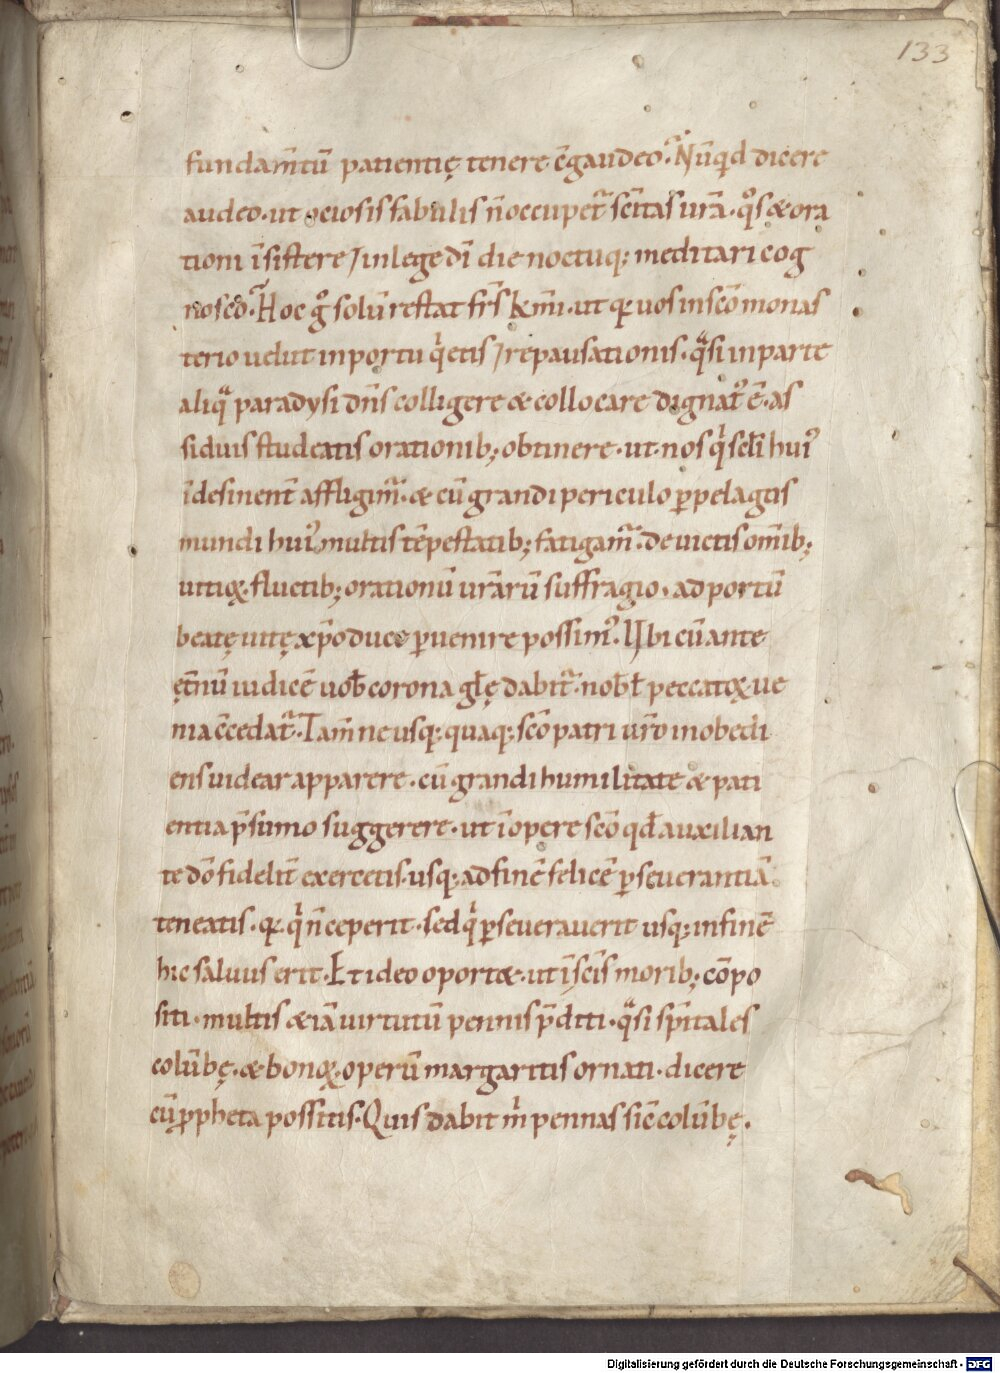 133
fundam̄tū patientię tenere c̄gaudeo. Nūqd dicere
audeo. ut ociosis fabulis n̄ occupet᷑ sc̄itas ur̄a. qͦs & ora
tioni īsistere ⁊ in lege dī die noctuq; meditari cog
nosco. Hoc gͦ solū restat fr̄s km̄i. ut qꝛ uos in sc̄o monas
terio uelut in portu qͥetis ⁊ repausationis. qͣsi in parte
aliqͣ paradysi dn̄s colligere & collocare dignatꝰ ē. as
siduis studeatis orationib; obtinere. ut nos qͥ sc̄li huiꝰ
īdesinent̄ affligim᷑. & cū grandi periculo ꝑ pelagus
mundi huiꝰ multis tēpestatib; fatigam᷑. deuictis om̄ib;
uitioꝝ fluctib; orationū ur̄arū suffragio. ad portū
beatę uitę xp̄o duce ꝑuenire possimꝰ. Ubi cū ante
ęt̄nū iudicē uob̄ corona gl̄ę dabit᷑. nob̄ ł peccatoꝝ ue
nia c̄cedat᷑. Tam̄ ne usq; quaq; sc̄o patri ur̄o inobedi
ens uidear apparere. cū grandi humilitate & pati
entia p̄sumo suggerere. ut ī opere sc̄o qd̄ auxilian
te dō fidelit̄ exercetis. usq; ad finē felicē ꝑseuerantiā
teneatis. qꝛ qͥ n̄ ceperit. sed qͥ ꝑseuerauerit usq; in finē
hic saluus erit. Et ideo oport&. ut ī sc̄is morib; cōpo
siti. multis &iā uirtutū pennis p̄diti. qͣsi sp̄itales
colūbę. & bonoꝝ operū margaritis ornati. dicere
cū ꝓpheta possitis. Quis dabit m̄ pennas sic̄ colūbę.
Digitalisierung gefördert durch die Deutsche Forschungsgemeinschaft - DFG